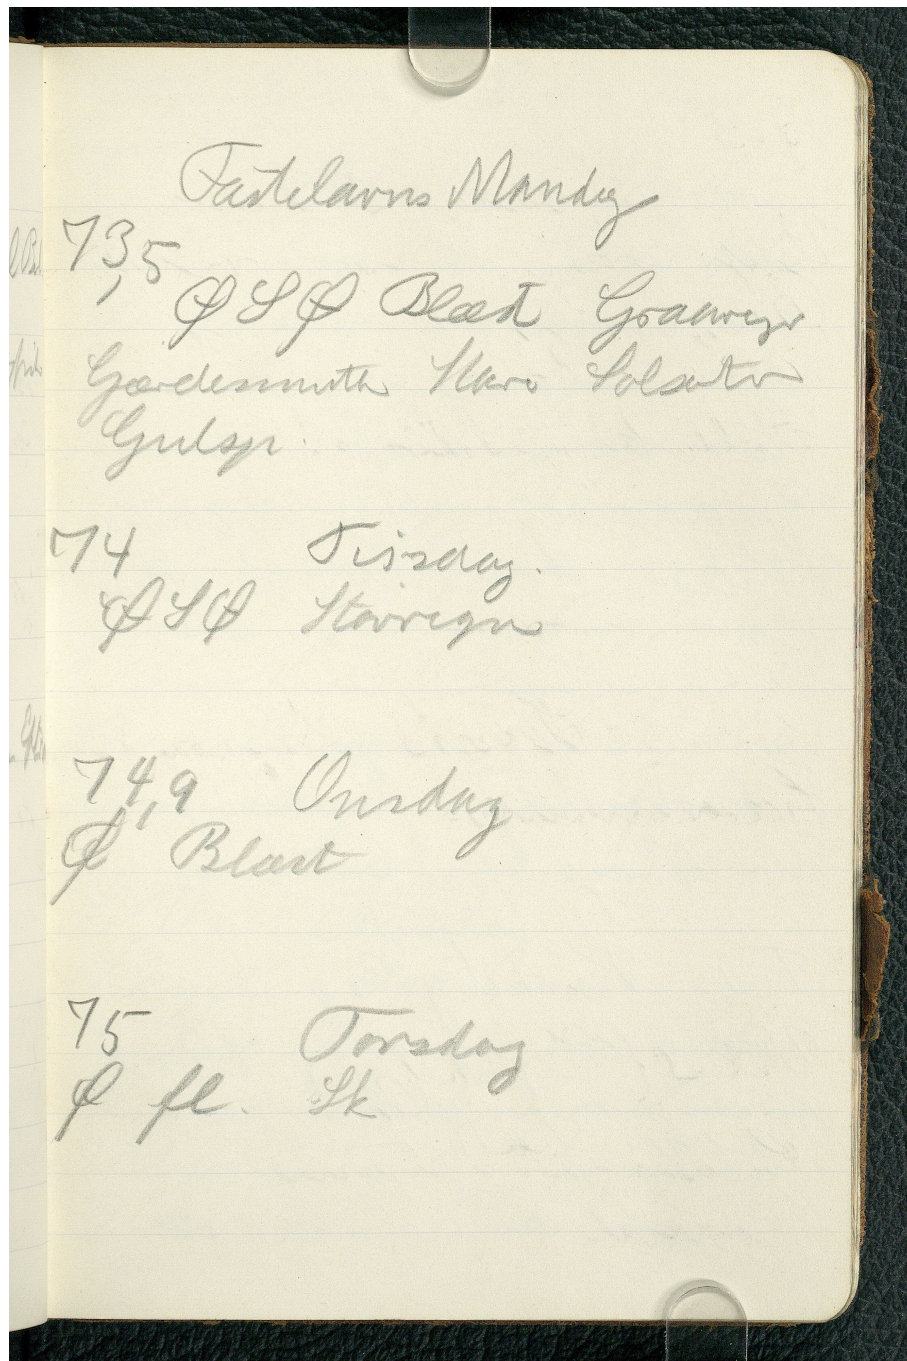 Fastelavns Mandag
73,5
Ø S Ø Blæst Graavejr
Gærdesmutte Stær Solsorter
Gulsp.
74 Tirsdag.
Ø S Ø Støvregn
74,9 Onsdag
Ø Blæst
75 Torsdag
Ø fl. Sk